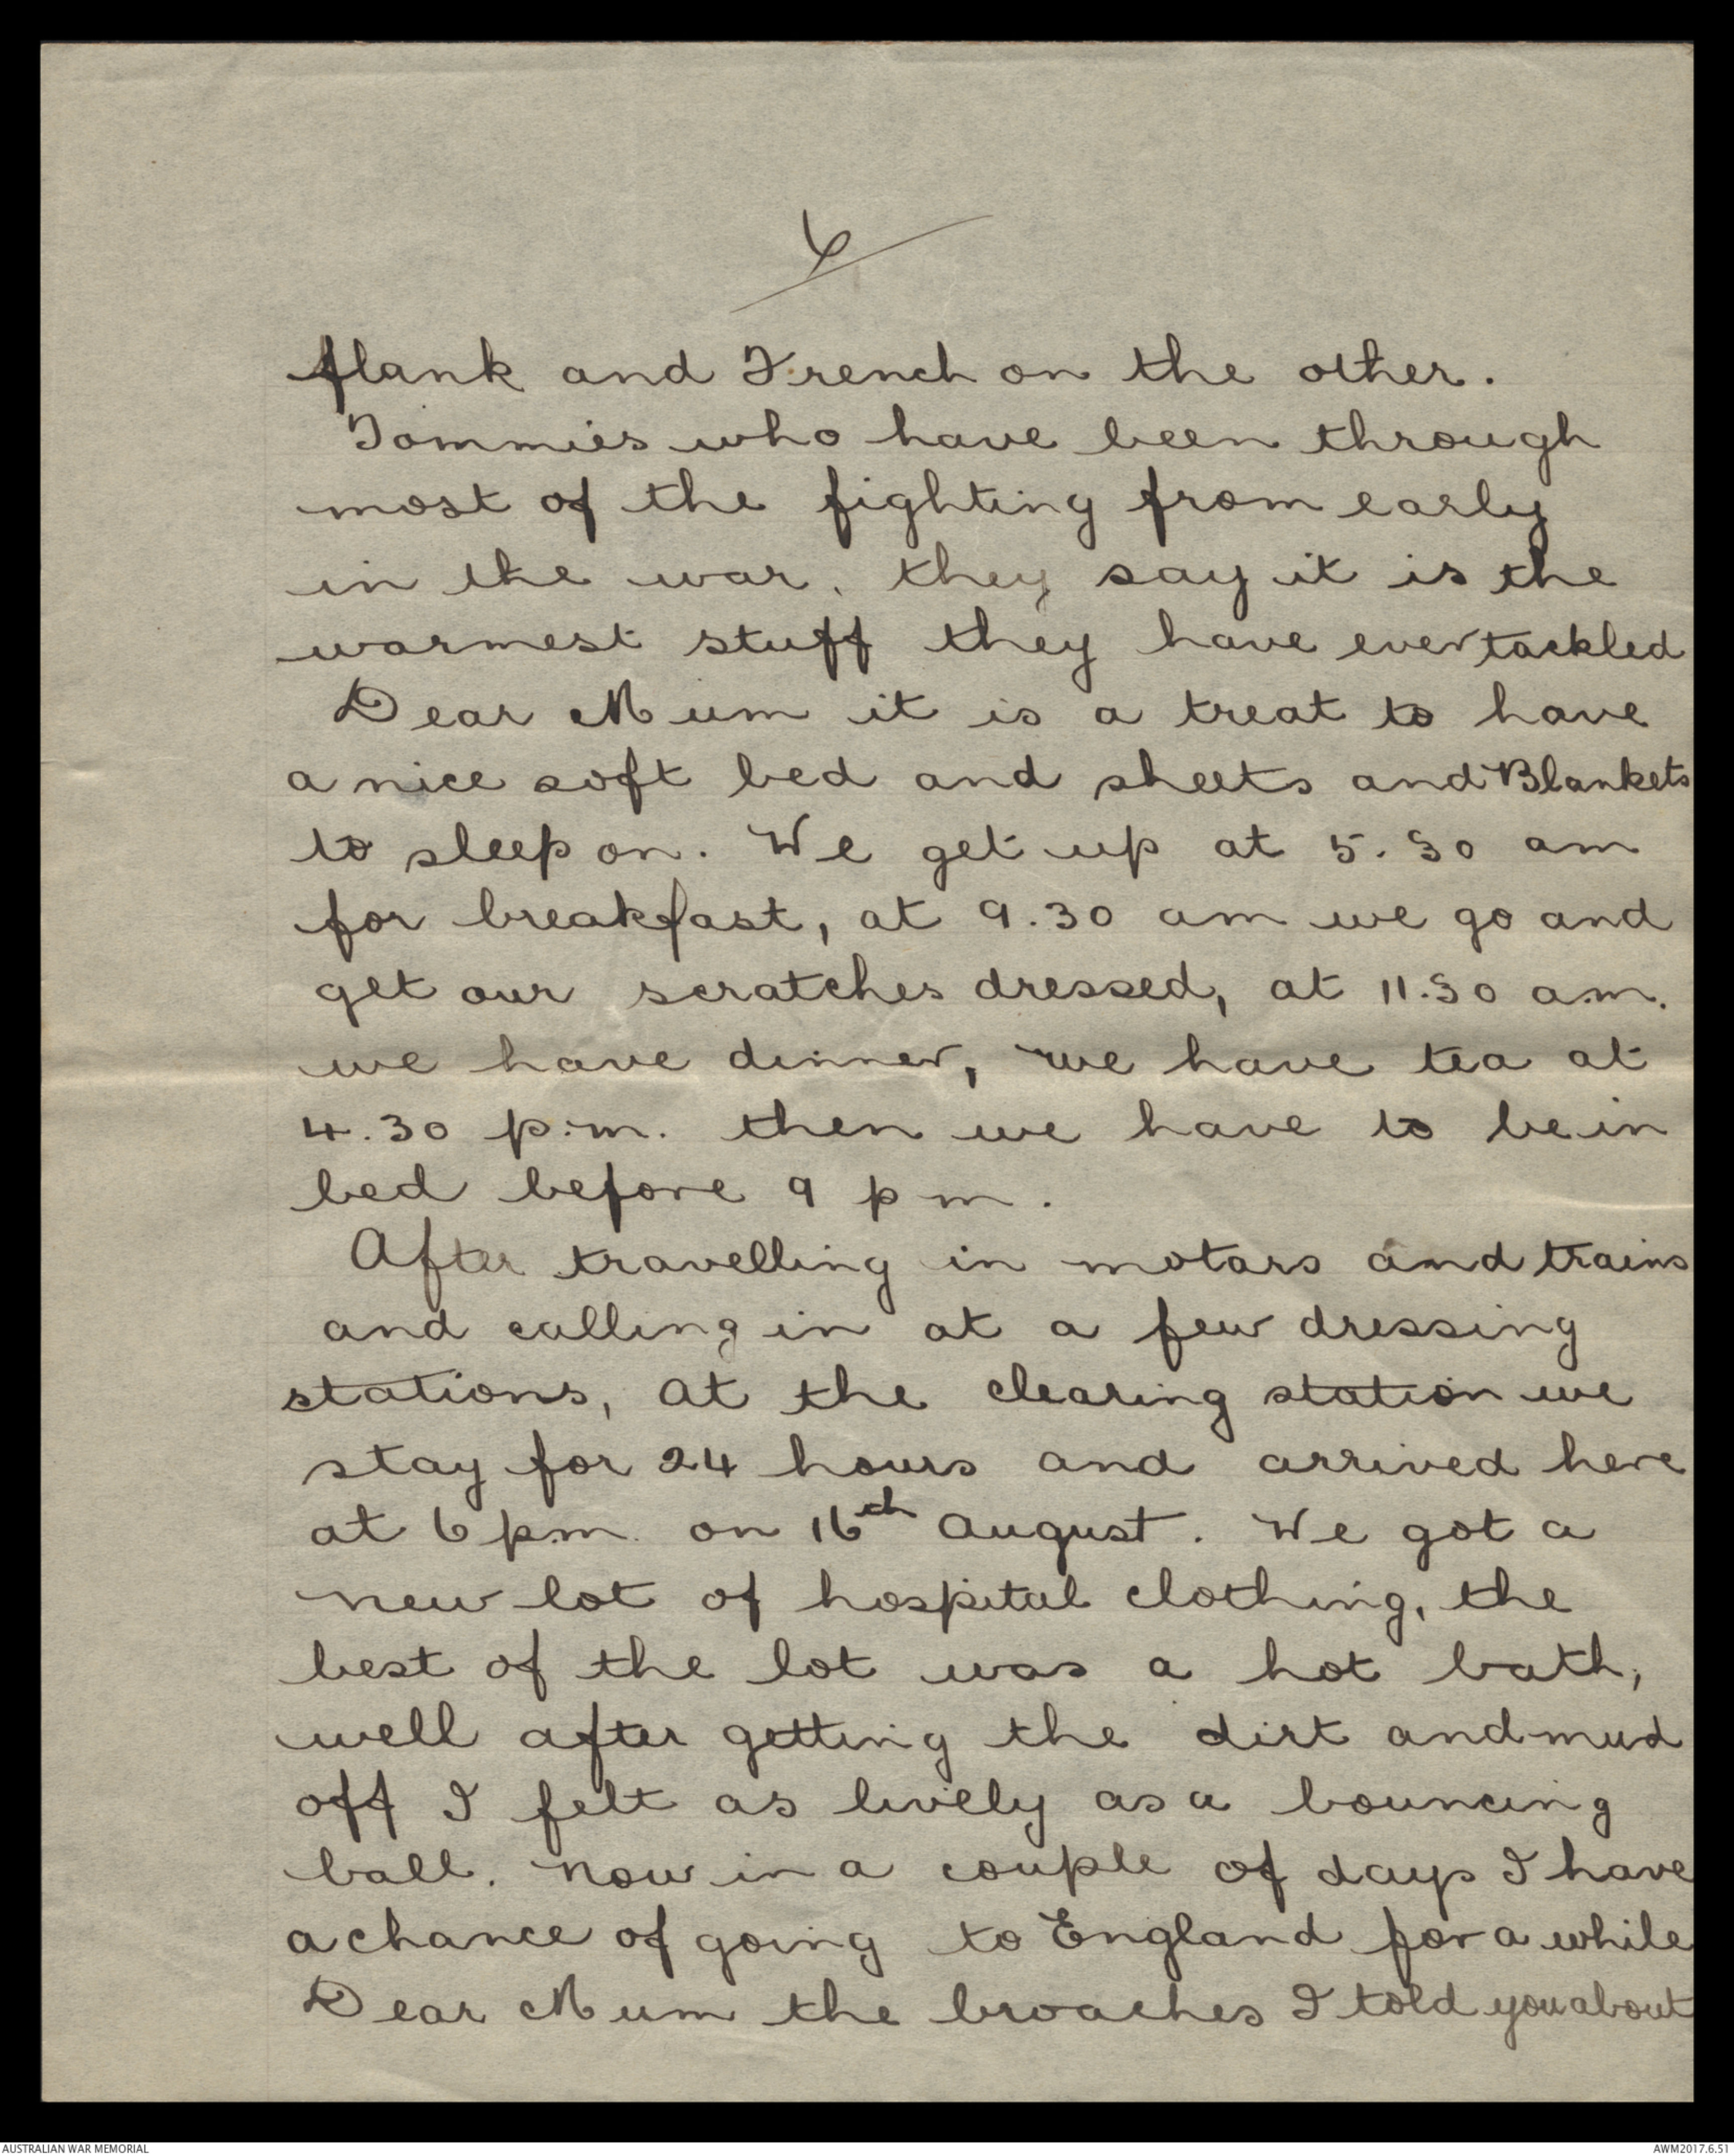 6
flank and French on the other.
Tommies who have been through
most of the fighting from early
in the war, they say it is the
warmest stuff they have ever tackled
Dear Mum it is a treat to have
a nice soft bed and sheets and Blankets
to sleep on. We get up at 5.30 am
for breakfast, at 9.30 am we go and
get our scratches dressed, at 11.30 a.m.
we have dinner, we have tea at
4.30 p.m. then we have to be in
bed before 9 pm.
After travelling in motors and trains
and calling in at a few dressing
stations, at the clearing station we
stay for 24 hours and arrived here
at 6 p.m. on 16th August. We got a
new lot of hospital clothing, the
best of the lot was a hot bath,
well after getting the dirt and mud
off I felt as lively as a bouncing
ball. Now in a couple of days I have
a chance of going to England for a while
Dear Mum the broaches I told you about
AUSTRALIAN WAR MEMORIAL
AWM2017.6.51